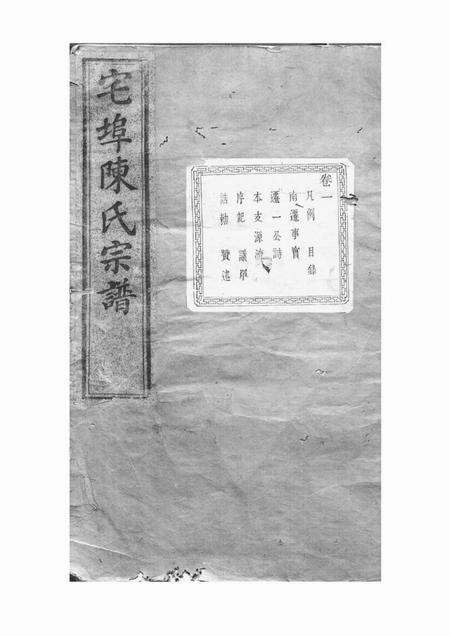 宅埠陳氏宗譜
卷一
凡例 目錄
南遷事實
遷一公詩
本支源流
序記 議單
誥勅 贊述